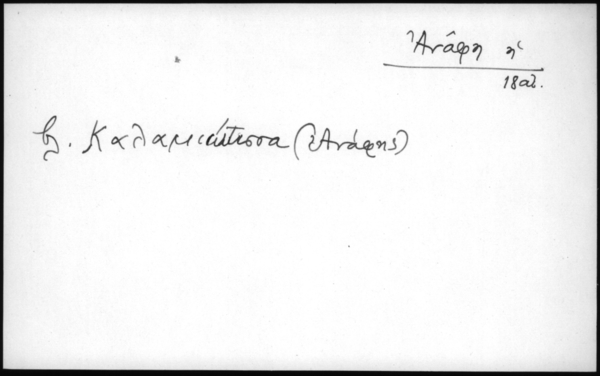 Ἀνάφη ἡ
18 αἰ.
βλ. Καλαμιώτισσα (Ἀνάφης)